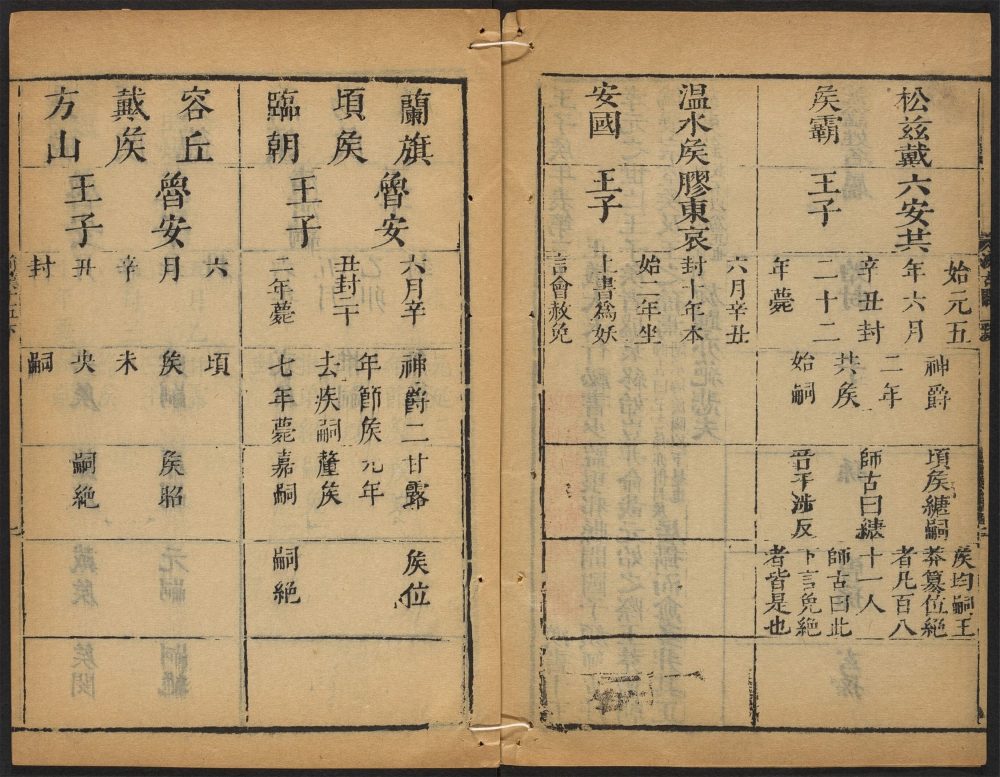 松兹戴
矦霸
六安共
王子
始元五
年六月
辛丑封
二十二
年薨
神爵
二年
共矦
始嗣
頃矦𦃇嗣
師古曰𦃇
矦均嗣王
莽篡位絶
者凡百八
十一人
師古曰此
下言免絶
者皆是也
温水矦
安國
膠東哀
王子
六月辛丑
封十年本
始二年坐
上書爲妖
言會赦免
蘭旗
頃矦
臨朝
魯安
王子
六月辛
丑封二十
二年薨
神爵二
年節矦
去疾嗣
七年薨
甘露
元年
釐矦
嘉嗣
矦位
嗣絶
容丘
戴矦
方山
魯安
王子
六
月
辛
丑
封
頃
矦
未
央
嗣
矦昭
嗣絶